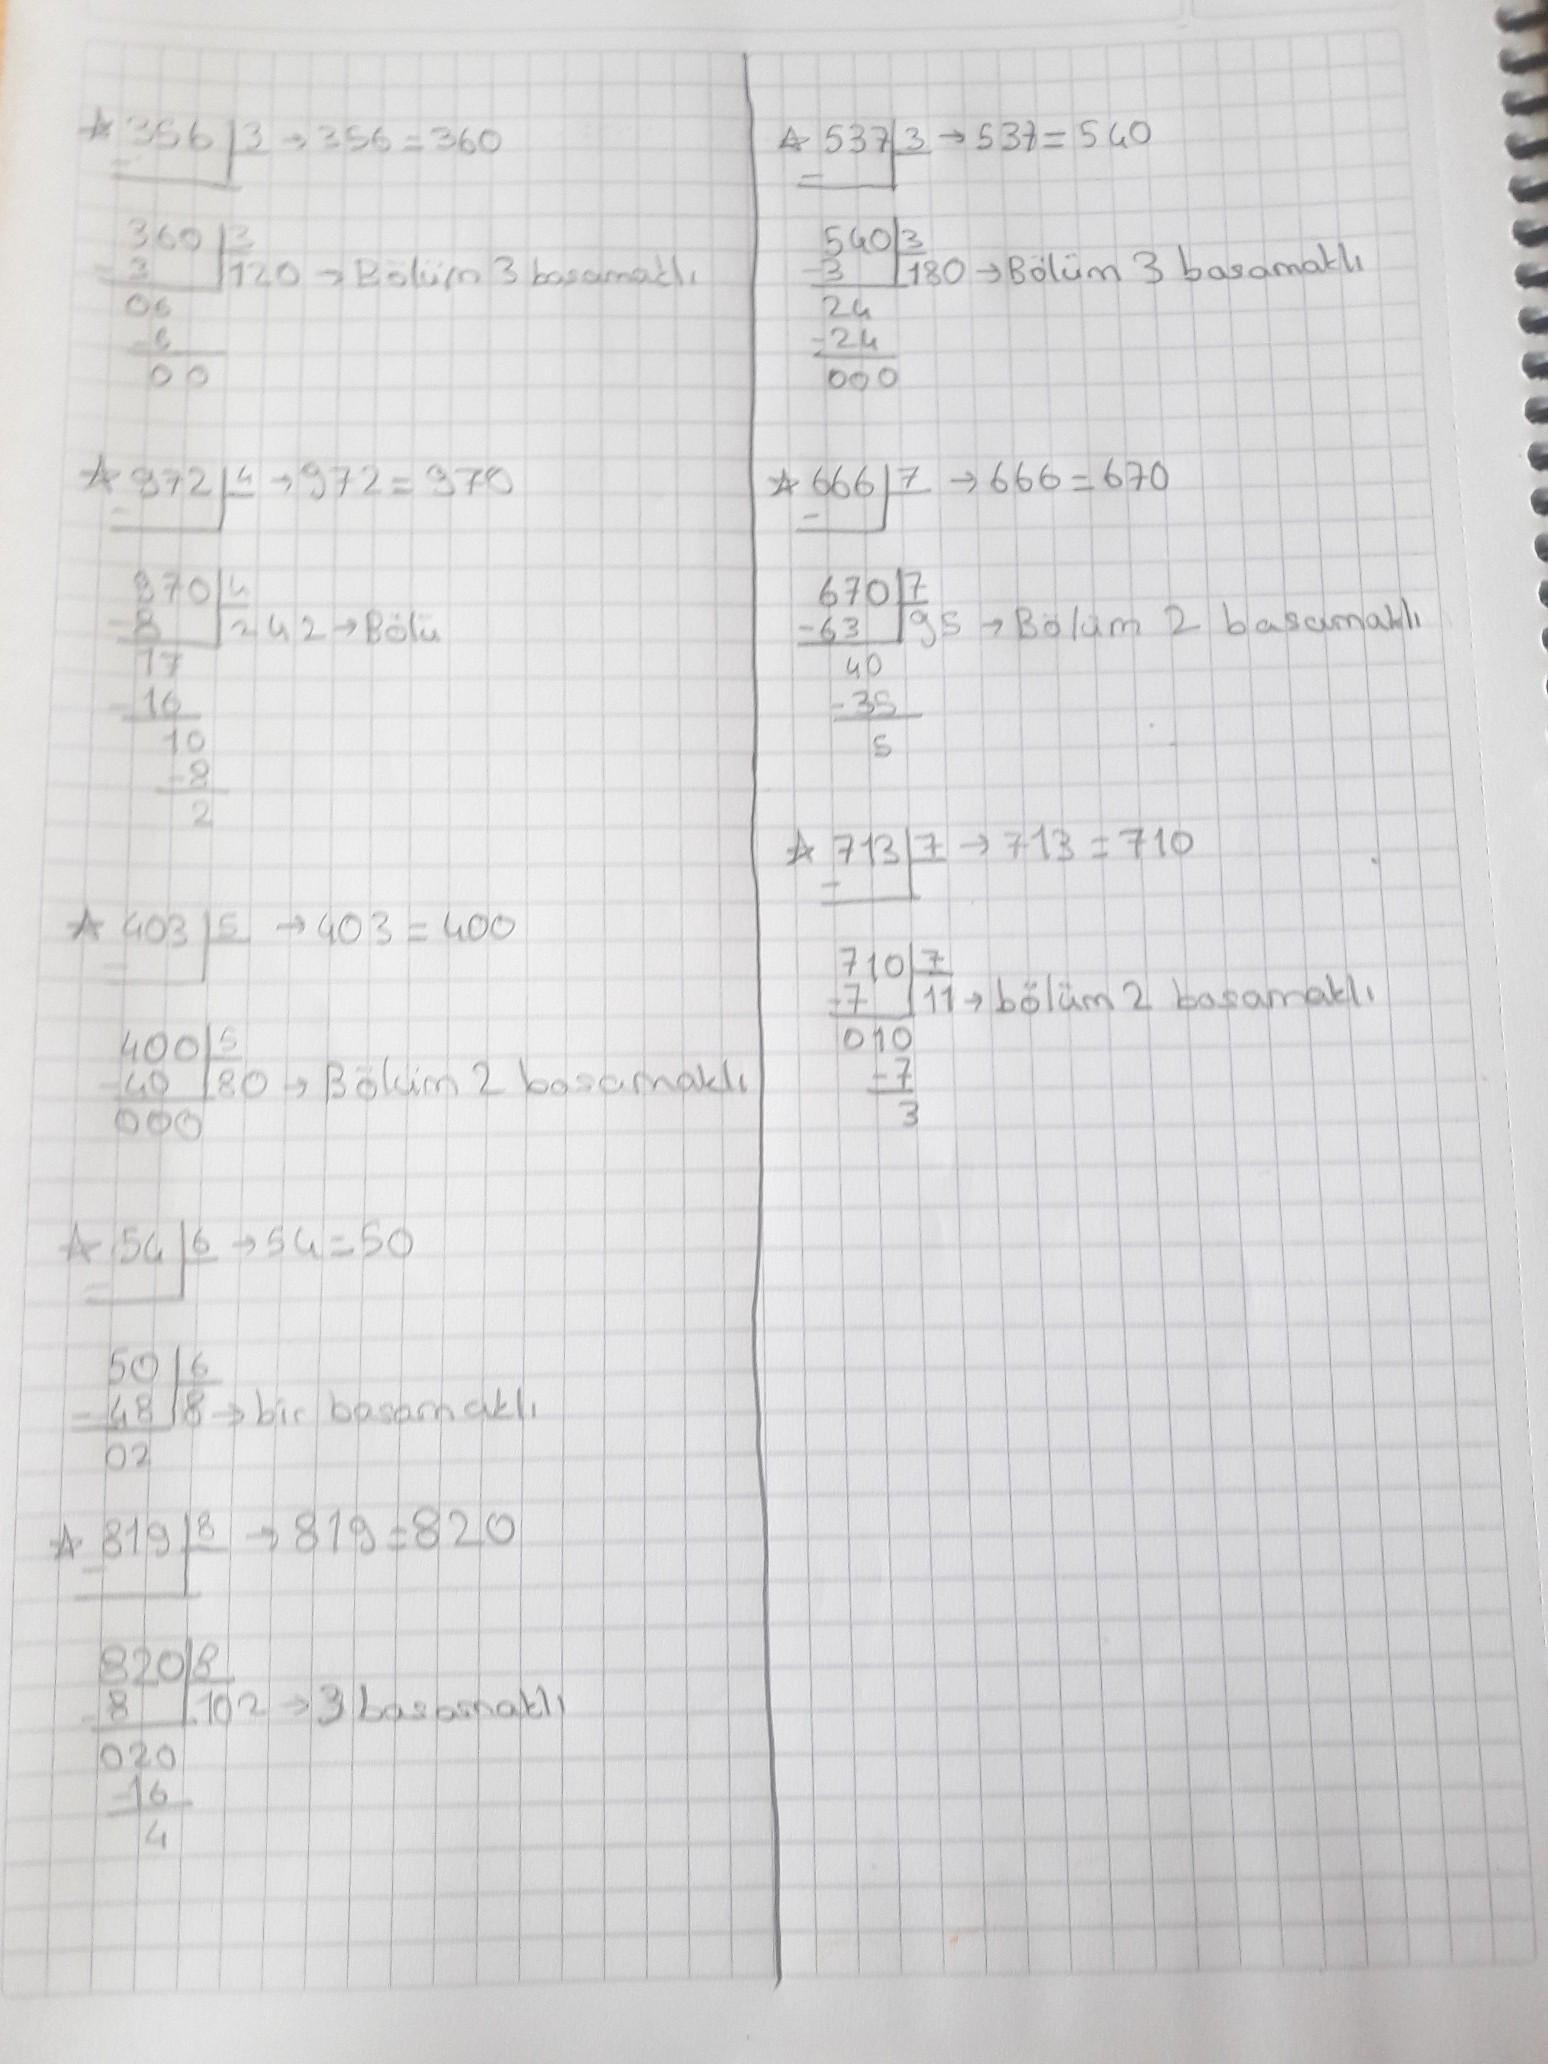 ☆ 356 3 → 356 = 360
-
360 3
- 3 120 → Bölüm 3 basamaklı
06
- 6
00
☆ 972 4 → 972 = 970
-
970 4
- 8 242 → Bölü
17
- 16
10
- 8
2
☆ 403 5 → 403 = 400
-
400 5
- 40 80 → Bölüm 2 basamaklı
000
☆ 54 6 → 54 = 50
-
50 6
- 48 8 → bir basamaklı
02
☆ 819 8 → 819 = 820
-
820 8
- 8 102 → 3 basamaklı
020
- 16
4
☆ 537 3 → 537 = 540
-
540 3
- 3 180 → Bölüm 3 basamaklı
24
- 24
000
☆ 666 7 → 666 = 670
-
670 7
- 63 95 → Bölüm 2 basamaklı
40
- 35
5
☆ 713 7 → 713 = 710
-
710 7
- 7 11 → bölüm 2 basamaklı
010
- 7
3